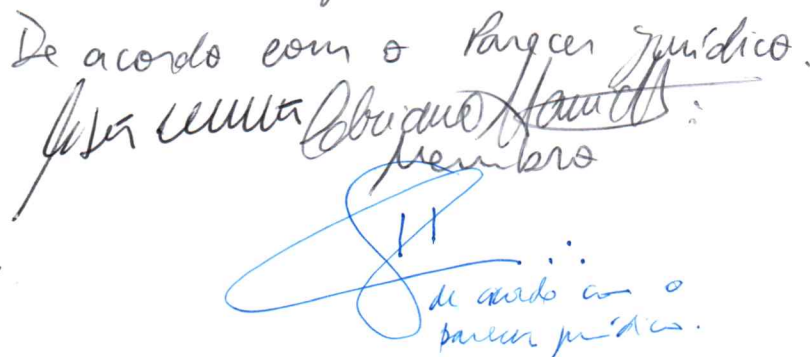 De acordo com o Parecer jurídico.
Membro
de acordo com o
parecer jurídico.